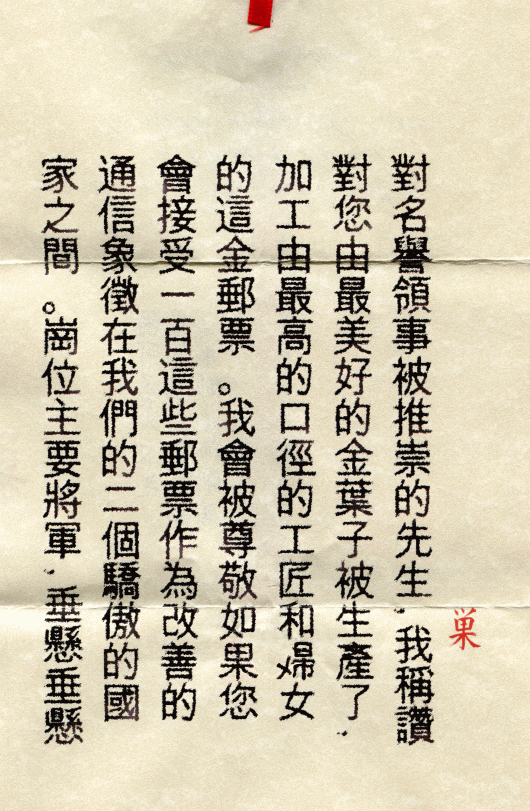 對名譽領事被推崇的先生.我稱讚
對您由最美好的金葉子被生產了.
加工由最高的口徑的工匠和婦女
的這金郵票。我會被尊敬如果您
會接受一百這些郵票作為改善的
通信象徵在我們的二個驕傲的國
家之間。崗位主要將軍.垂懸垂懸
巢